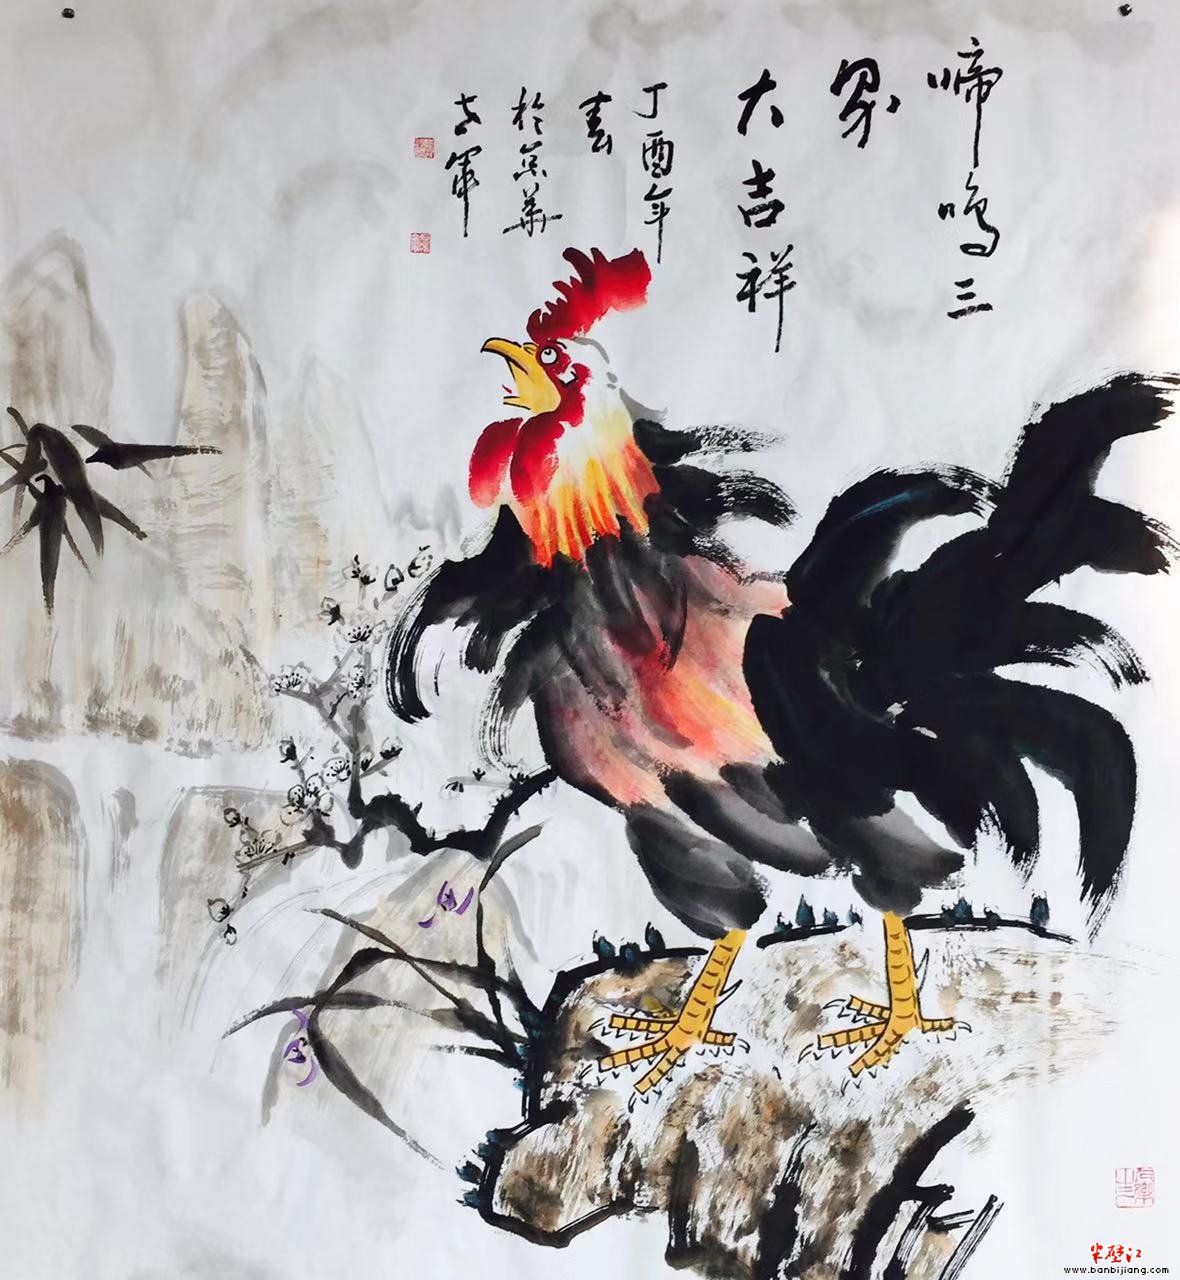 啼鸣三
界
大吉祥
丁酉年
春
於京華
志軍
半壁江
www.banbijiang.com